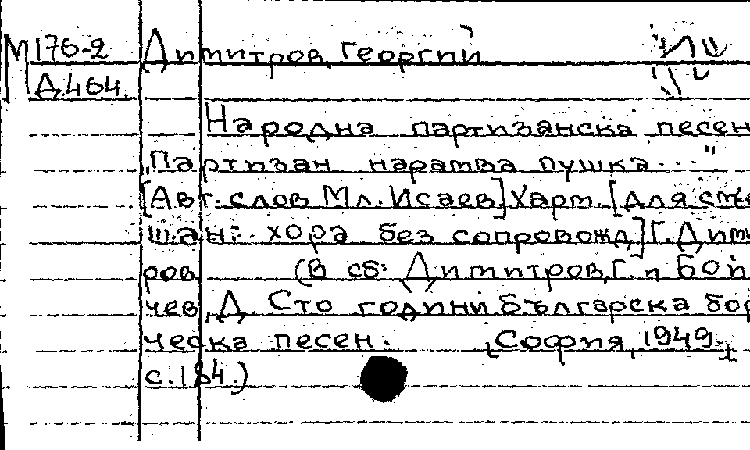 М176-2 Димитров, Георгий
Д464.
Народна партизанска песен
„Партизан нарамва пушка..."
[Авт. слов Мл. Исаев] Харм. [для сме
шан. хора без сопровожд.] Г. Дими
ров (В сб: Димитров, Г. и Бой
чев, Д. Сто години българска бор
ческа песен. [София, 1949.]
с. 184.)